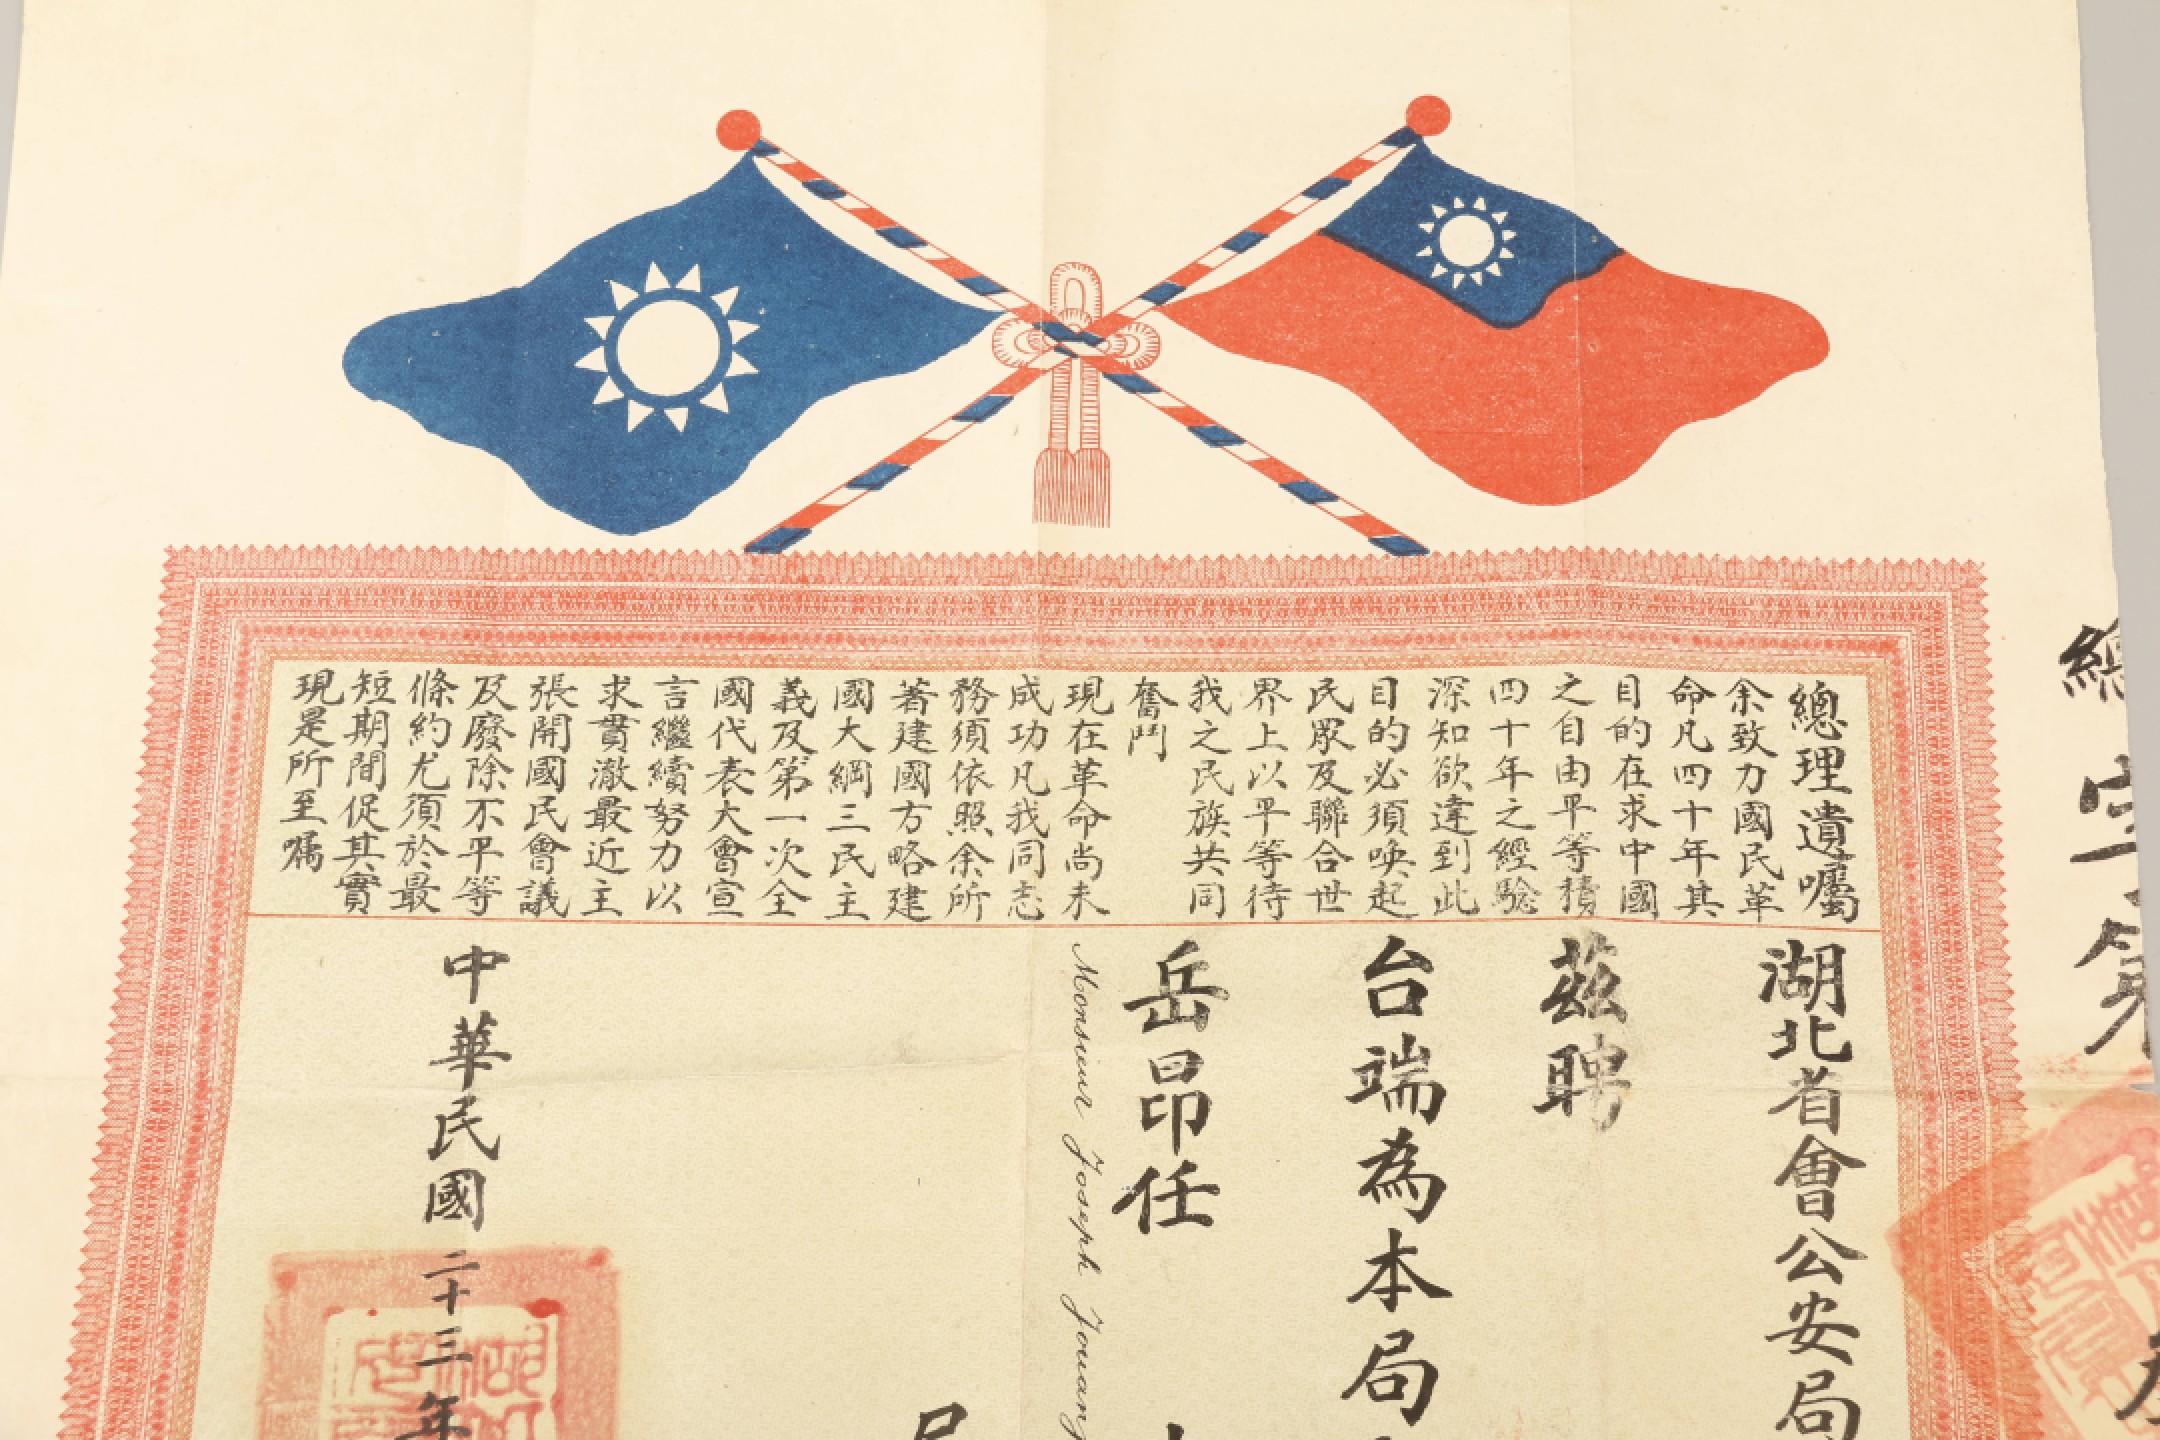 總理遺囑
余致力國民革
命凡四十年其
目的在求中國
之自由平等積
四十年之經驗
深知欲達到此
目的必須喚起
民眾及聯合世
界上以平等待
我之民族共同
奮鬥
現在革命尚未
成功凡我同志
務須依照余所
著建國方略建
國大綱三民主
義及第一次全
國代表大會宣
言繼續努力以
求貫澈最近主
張開國民會議
及廢除不平等
條約尤須於最
短期間促其實
現是所至囑
湖北省會公安局
茲聘
台端為本局
岳昂任
Monsieur Joseph Jouang
中華民國二十三年